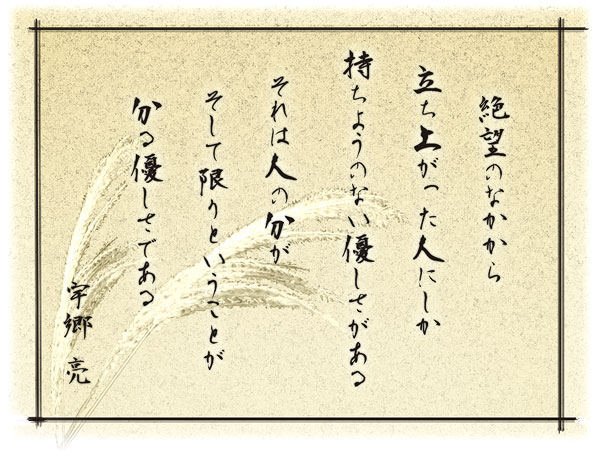 絶望のなかから
立ち上がった人にしか
持ちようのない優しさがある
それは人の分が
そして限りということが
分る優しさである
宇郷 亮